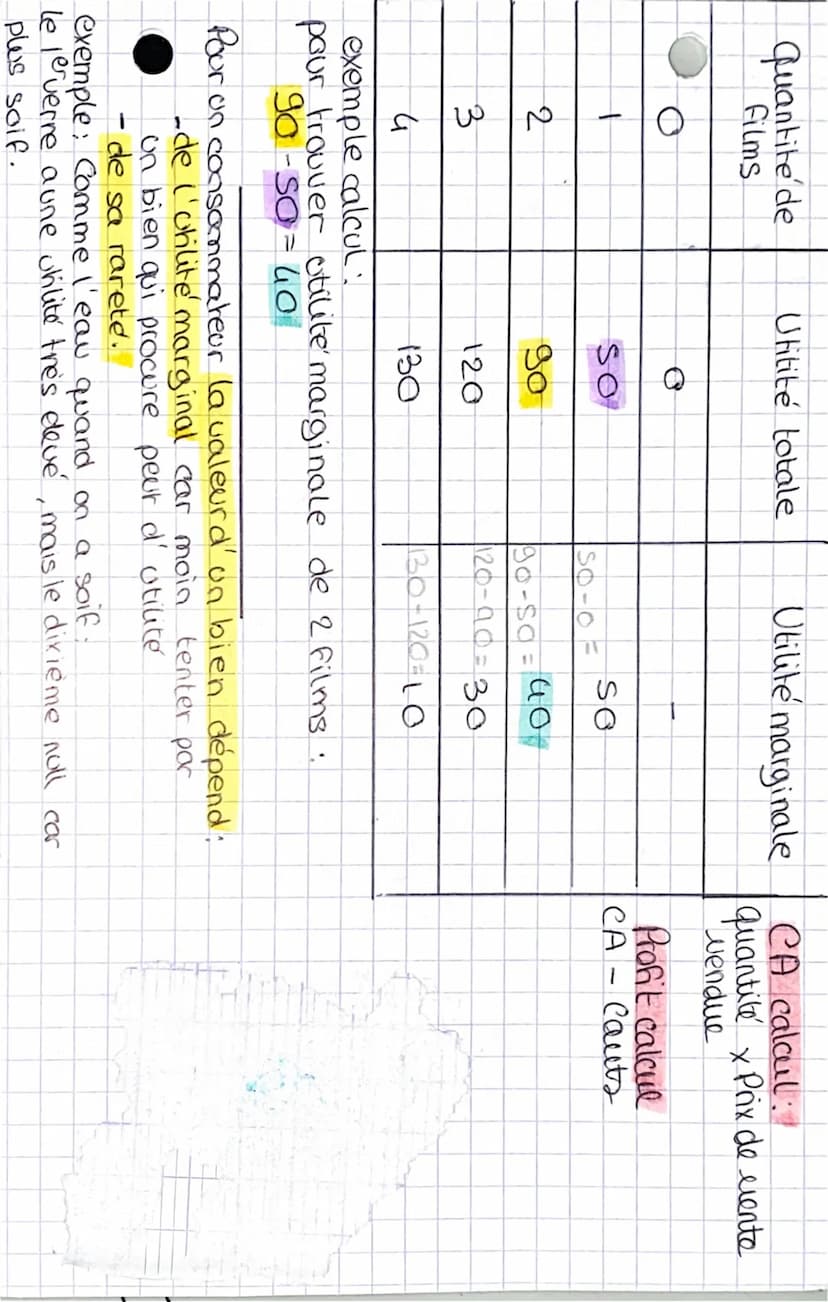 Quantité de films
Utilité totale
Utilité marginale
0
0
-
1
50
50-0= 50
2
90
90-50= 40
3
120
120-90= 30
4
130
130-120=10
CA calcul:
quantité x Prix de vente
vendue
Profit calcul
CA - Couts
exemple calcul:
pour trouver utilité marginale de 2 films:
90-50=40
Pour un consommateur la valeur d'un bien dépend:
- de l'utilité marginal car moin tenter par
un bien qui procure peur d'utilité
- de sa rareté.
exemple: Comme l'eau quand on a soif:
le 1er verre a une utilité très élevé, mais le dixième null car
plus soif.